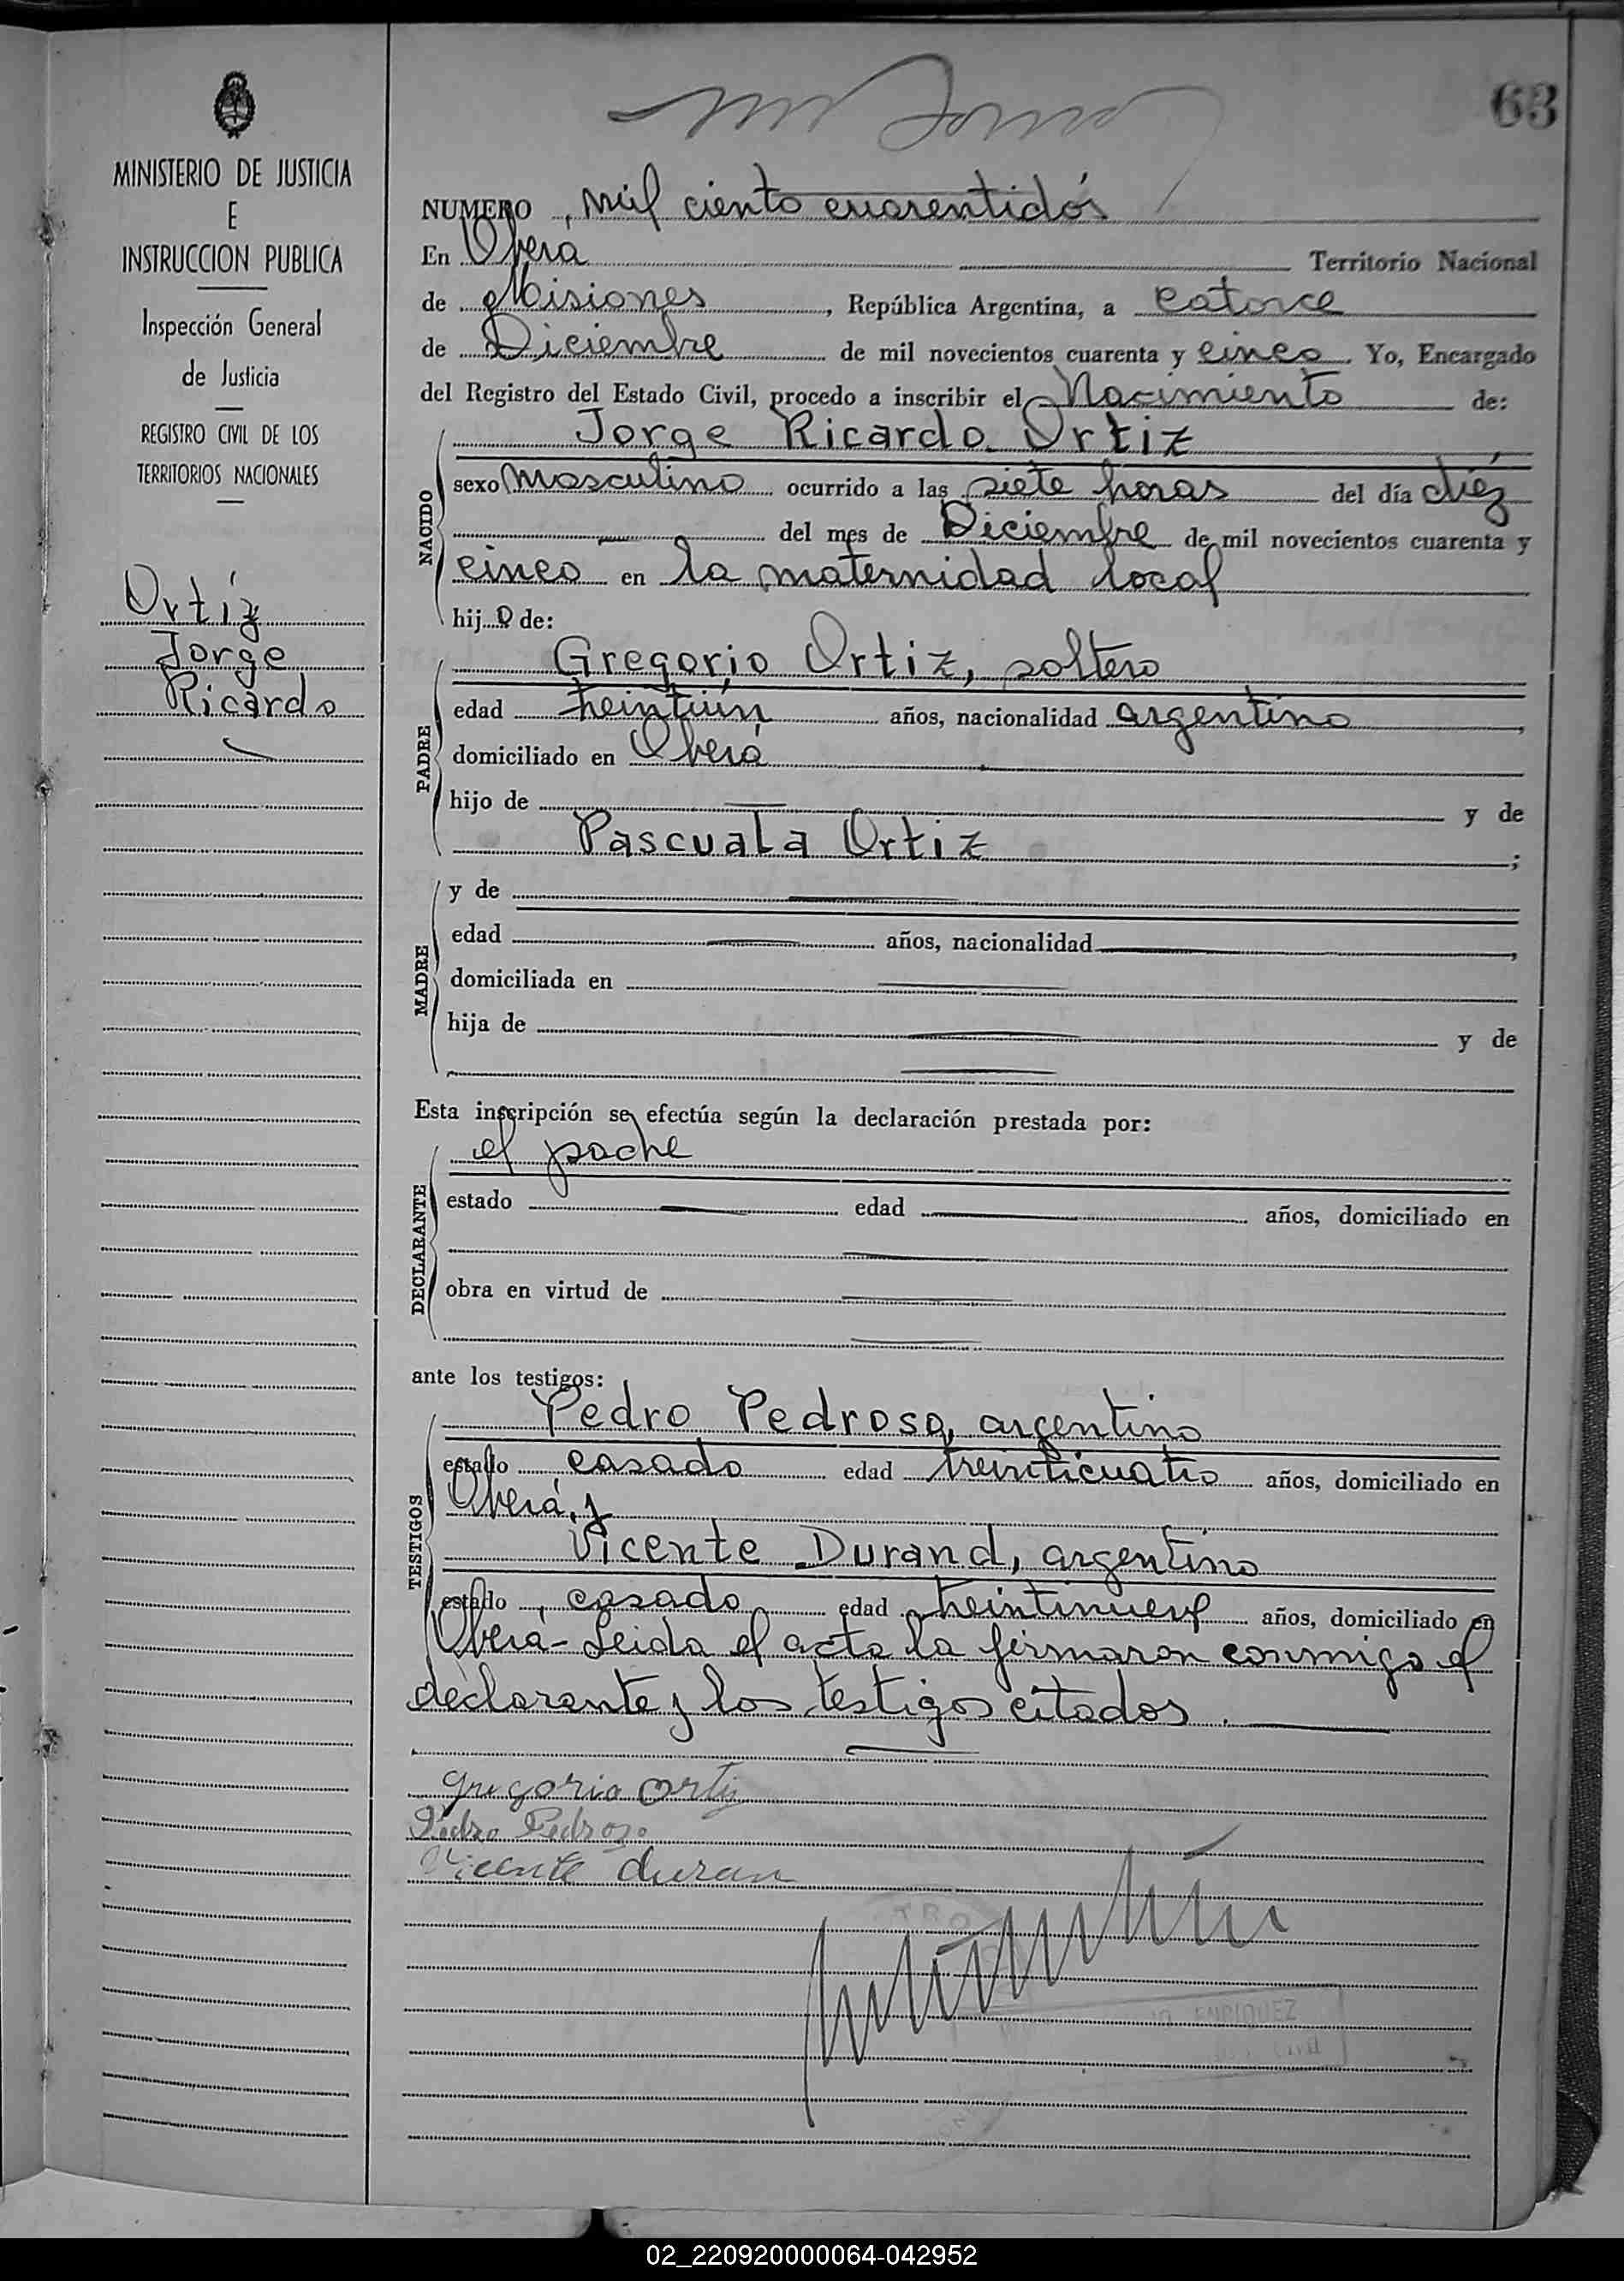 63
MINISTERIO DE JUSTICIA
E
INSTRUCCION PUBLICA
Inspección General
de Justicia
REGISTRO CIVIL DE LOS
TERRITORIOS NACIONALES
Ortíz
Jorge
Ricardo
NUMERO, mil ciento cuarentidós
En Oberá Territorio Nacional
de Misiones, República Argentina, a catorce
de Diciembre de mil novecientos cuarenta y cinco. Yo, Encargado
del Registro del Estado Civil, procedo a inscribir el Nacimiento de:
NACIDO
Jorge Ricardo Ortiz
sexo masculino ocurrido a las siete horas del día diéz
del mes de Diciembre de mil novecientos cuarenta y
cinco en la maternidad local
hijo de:
PADRE
Gregorio Ortiz, soltero
edad treintiún años, nacionalidad argentino,
domiciliado en Oberá
hijo de — y de
Pascuala Ortiz;
MADRE
y de —
edad — años, nacionalidad —,
domiciliada en —
hija de — y de
—
Esta inscripción se efectúa según la declaración prestada por:
DECLARANTE
el padre
estado — edad — años, domiciliado en
—
obra en virtud de —
—
ante los testigos:
TESTIGOS
Pedro Pedroso, argentino
estado casado edad treinticuatro años, domiciliado en
Oberá, y
Vicente Durand, argentino
estado, casado edad treintinueve años, domiciliado en
Oberá - Leida el acta la firmaron conmigo el
declarante y los testigos citados.
Gregorio Ortiz
Pedro Pedrozo
Vicente Duran
TRO
ENRIQUEZ
02_220920000064-042952